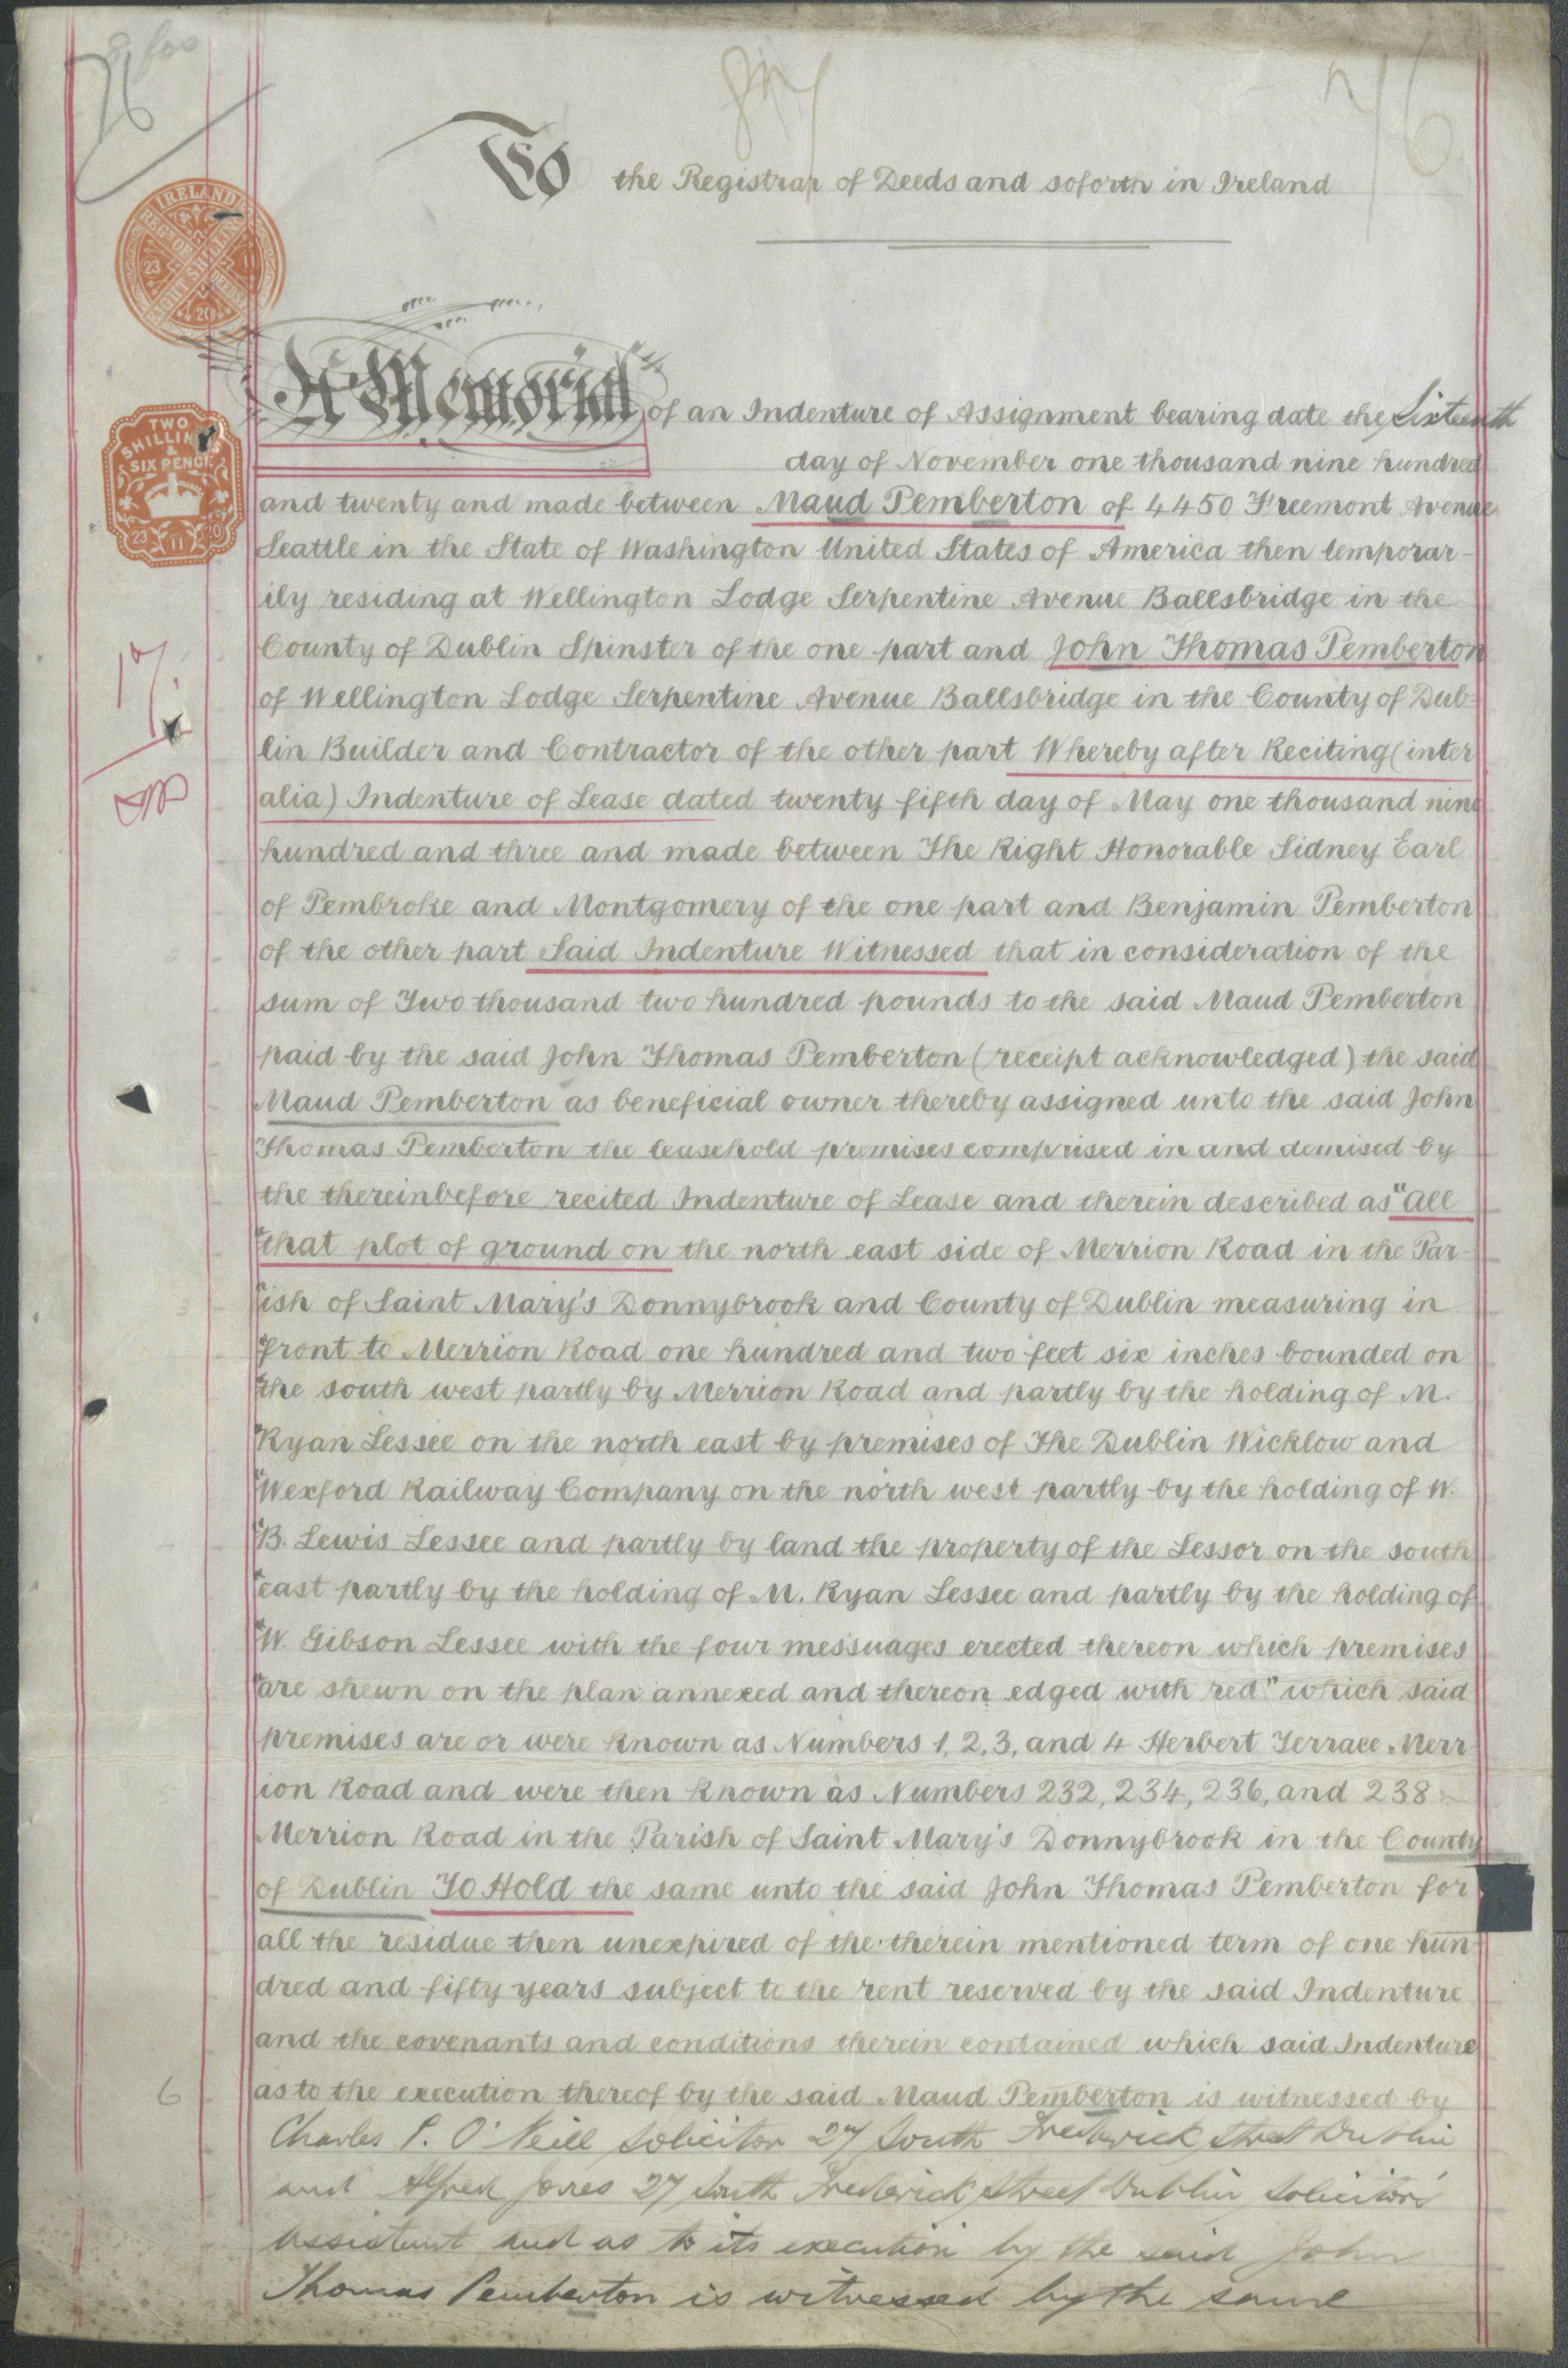 76
To the Registrar of Deeds and soforth in Ireland
IRELAND
REGN OF DEEDS
EIGHT SHILLINGS
23 11 20
A Memorial of an Indenture of Assignment bearing date the Sixteenth
day of November one thousand nine hundred
TWO SHILLINGS & SIX PENCE
23 11 20
and twenty and made between Maud Pemberton of 4450 Freemont Avenue
Seattle in the State of Washington United States of America then temporar-
ily residing at Wellington Lodge Serpentine Avenue Ballsbridge in the
County of Dublin Spinster of the one part and John Thomas Pemberton
of Wellington Lodge Serpentine Avenue Ballsbridge in the County of Dub-
lin Builder and Contractor of the other part Whereby after Reciting (inter
alia) Indenture of Lease dated twenty fifth day of May one thousand nine
hundred and three and made between The Right Honorable Sidney Earl
of Pembroke and Montgomery of the one part and Benjamin Pemberton
2 of the other part Said Indenture Witnessed that in consideration of the
sum of Two thousand two hundred pounds to the said Maud Pemberton
paid by the said John Thomas Pemberton (receipt acknowledged) the said
Maud Pemberton as beneficial owner thereby assigned unto the said John
Thomas Pemberton the leasehold premises comprised in and demised by
the thereinbefore recited Indenture of Lease and therein described as "All
"that plot of ground on the north east side of Merrion Road in the Par-
3 "ish of Saint Mary's Donnybrook and County of Dublin measuring in
"front to Merrion Road one hundred and two feet six inches bounded on
"the south west partly by Merrion Road and partly by the holding of M.
"Ryan Lessee on the north east by premises of The Dublin Wicklow and
"Wexford Railway Company on the north west partly by the holding of W.
4 "B. Lewis Lessee and partly by land the property of the Lessor on the south
"east partly by the holding of M. Ryan Lessee and partly by the holding of
"W. Gibson Lessee with the four messuages erected thereon which premises
"are shewn on the plan annexed and thereon edged with red" which said
premises are or were known as Numbers 1, 2, 3, and 4 Herbert Terrace Merr-
5 ion Road and were then known as Numbers 232, 234, 236, and 238
Merrion Road in the Parish of Saint Mary's Donnybrook in the County
of Dublin To Hold the same unto the said John Thomas Pemberton for
all the residue then unexpired of the therein mentioned term of one hun-
dred and fifty years subject to the rent reserved by the said Indenture
and the covenants and conditions therein contained which said Indenture
6 as to the execution thereof by the said Maud Pemberton is witnessed by
Charles P. O'Neill Solicitor 27 South Frederick Street Dublin
and Alfred Jones 27 South Frederick Street Dublin Solicitor's
assistant and as to its execution by the said John
Thomas Pemberton is witnessed by the same